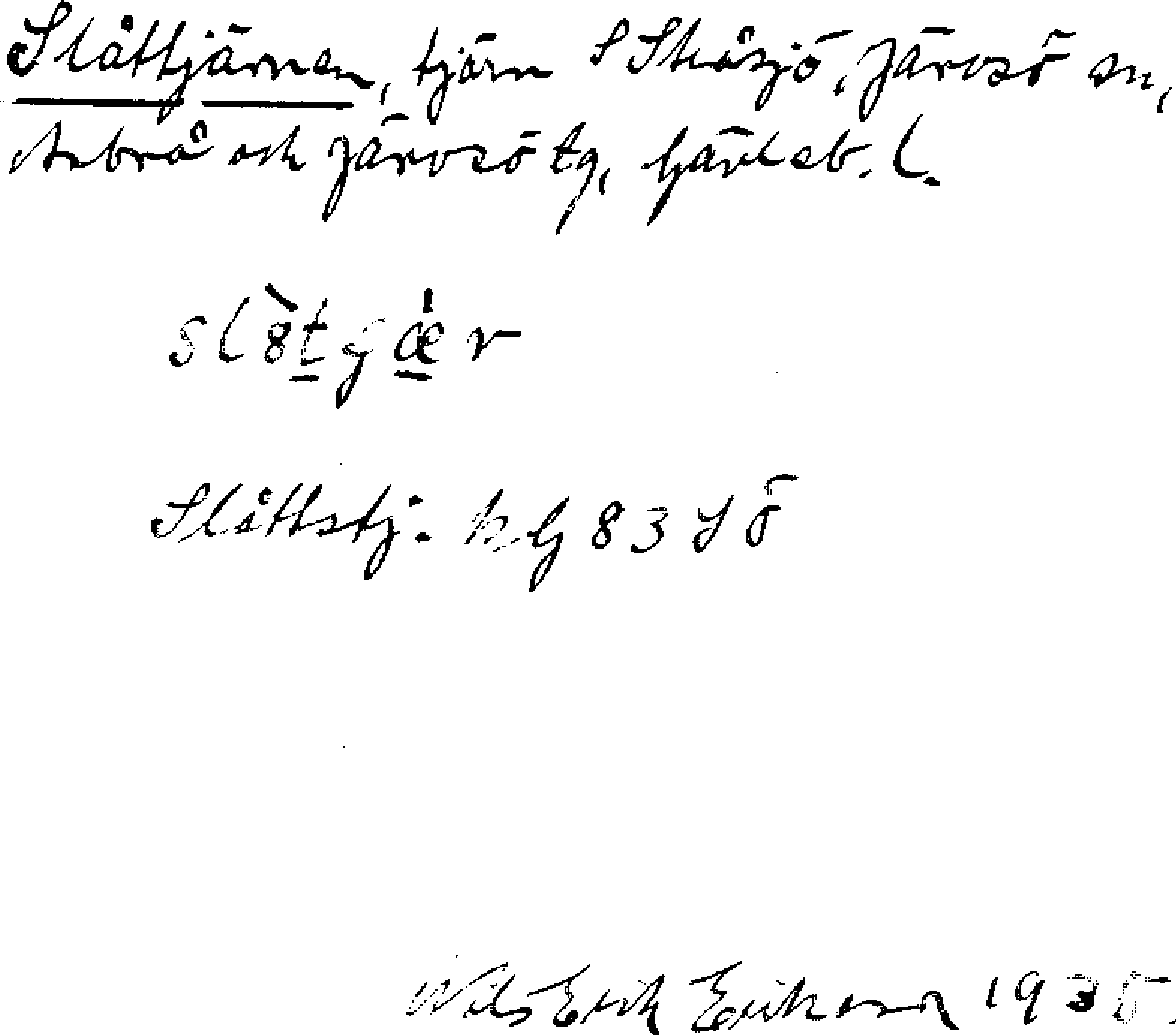 Slåttjärnen, tjärn S Skåsjö, Järvsö sn,
Arbrå och Järvsö tg, Gävleb. l.
Slåttstj. hG 83 SÖ
Nils Erik Erikson 1935